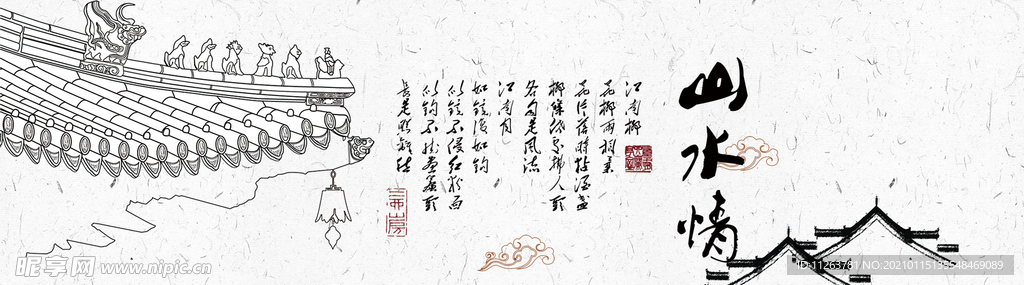 山水情
江南柳
花柳两相柔
花片落时黏酒盏
柳条低处拂人头
各自是风流
江南月
如镜复如钩
似镜不侵红粉面
似钩不挂画帘头
长是照离愁
昵享网 www.nipic.cn
ID:11263781